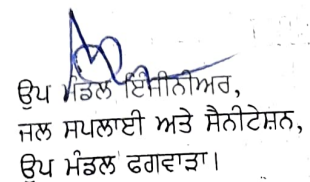 ਉਪ ਮੰਡਲ ਇੰਜੀਨੀਅਰ,
ਜਲ ਸਪਲਾਈ ਅਤੇ ਸੈਨੀਟੇਸ਼ਨ,
ਉਪ ਮੰਡਲ ਫਗਵਾੜਾ।